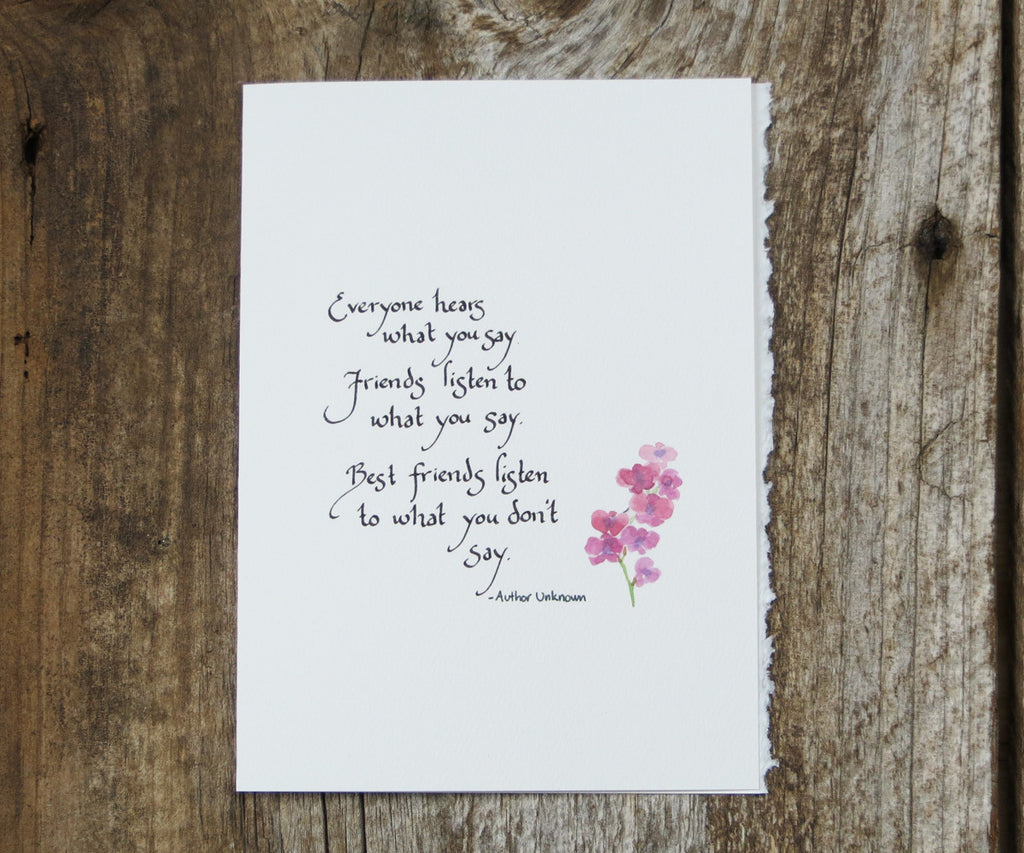 Everyone hears
what you say.
Friends listen to
what you say.
Best friends listen
to what you don't
say.
-Author Unknown